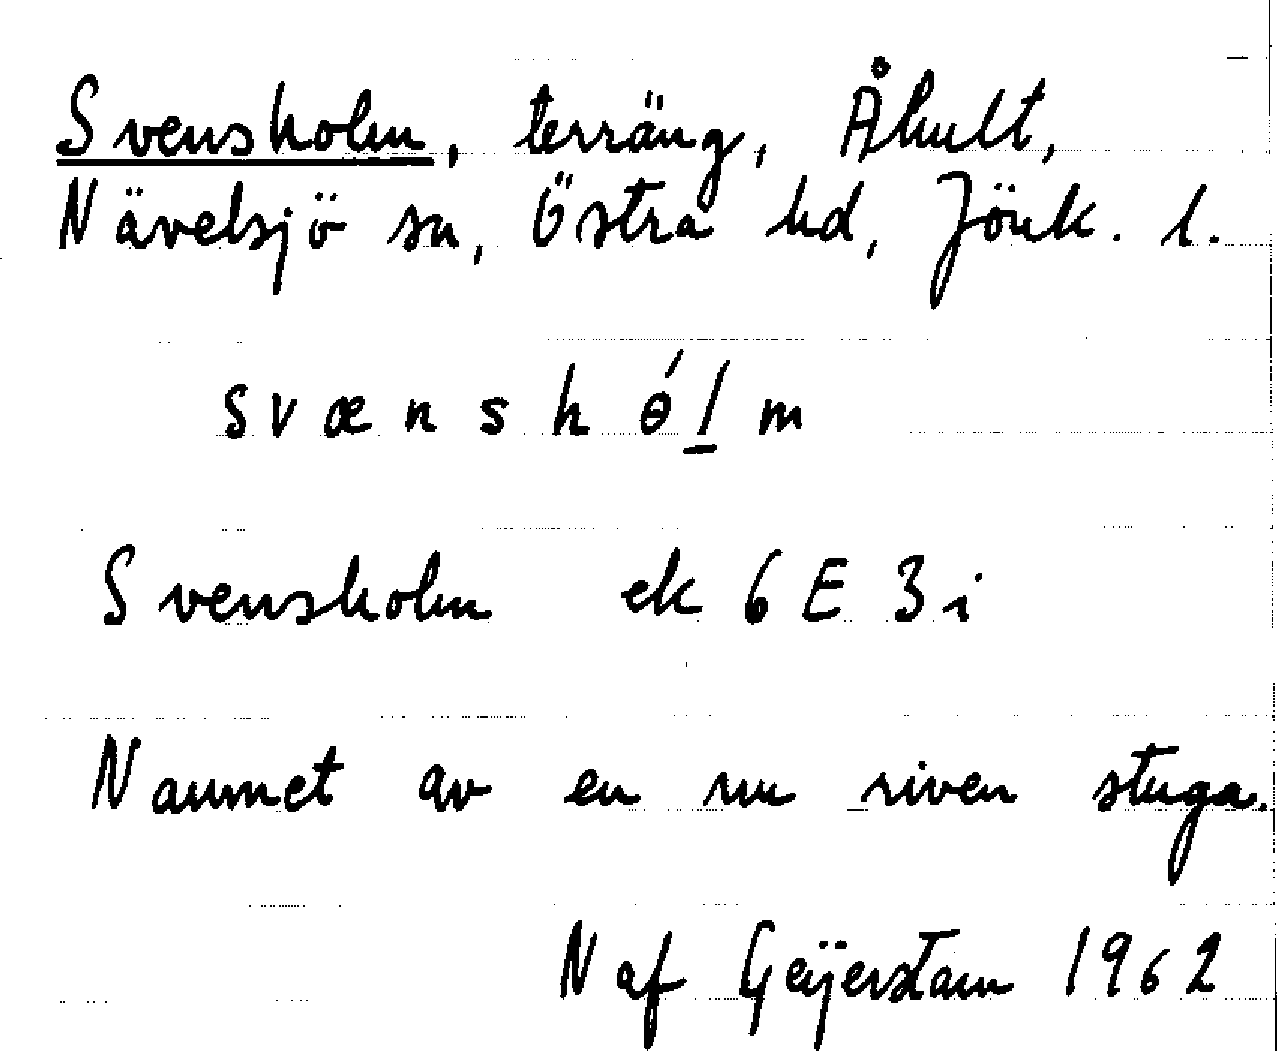 Svensholm, terräng, Åhult,
Nävelsjö sn, Östra hd, Jönk. l.
svænshɵ́l̲m
Svensholm ek 6E3i
Namnet av en nu riven stuga.
N af Geijerstam 1962